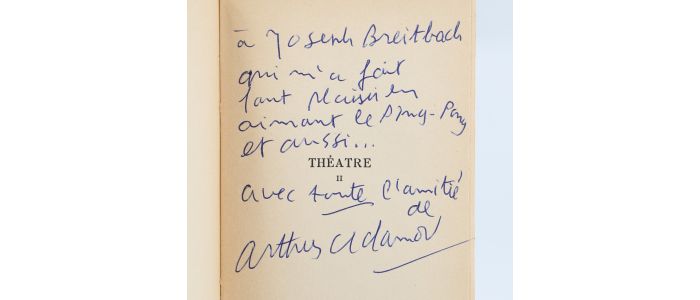 à Joseph Breitbach
qui m'a fait
tant plaisir en
aimant le Ping-Pong
et aussi...
THÉATRE
II
avec toute l'amitié
de
Arthur Adamov